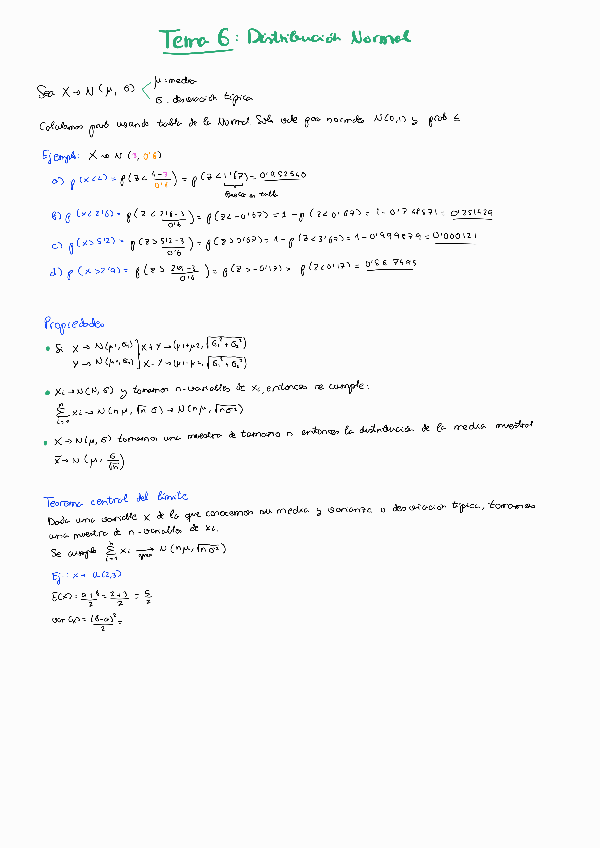 Tema 6: Distribución Normal
Sea X → N(μ, σ) μ: media
σ: desviación típica
Calculamos prob usando tabla de la Normal. Solo vale para normales N(0,1) y prob ≤
Ejemplo: X → N(3, 0'6)
a) p(x<4) = p(Z < 4-3/0'6) = p(Z < 1'67) = 0'952540
Busco en tabla
b) p(x<2'6) = p(Z < 2'6-3/0'6) = p(Z < -0'67) = 1 - p(Z < 0'67) = 1 - 0'748571 = 0'251429
c) p(x>5'2) = p(Z > 5'2-3/0'6) = p(Z > 3'67) = 1 - p(Z < 3'67) = 1 - 0'999879 = 0'000121
d) p(x>2'9) = p(Z > 2'9-3/0'6) = p(Z > -0'17) = p(Z < 0'17) = 0'567495
Propiedades
• Si X → N(μ1, σ1) X+Y → (μ1+μ2, √σ1²+σ2²)
Y → N(μ2, σ2) X-Y → (μ1-μ2, √σ1²+σ2²)
• Xi → N(μ, σ) y tomamos n-variables de xi, entonces se cumple:
Σ xi → N(nμ, √n σ) → N(nμ, √nσ²)
• X → N(μ, σ) tomamos una muestra de tamaño n entonces la distribución de la media muestral
x̄ → N(μ, σ/√n)
Teorema central del límite
Dada una variable X de la que conocemos su media y varianza o desviación típica, tomamos
una muestra de n-variables de xi.
Se cumple Σ xi → N(nμ, √nσ²)
Ej: x → U(2,3)
E(x) = a+b/2 = 2+3/2 = 5/2
var(x) = (b-a)²/2 =